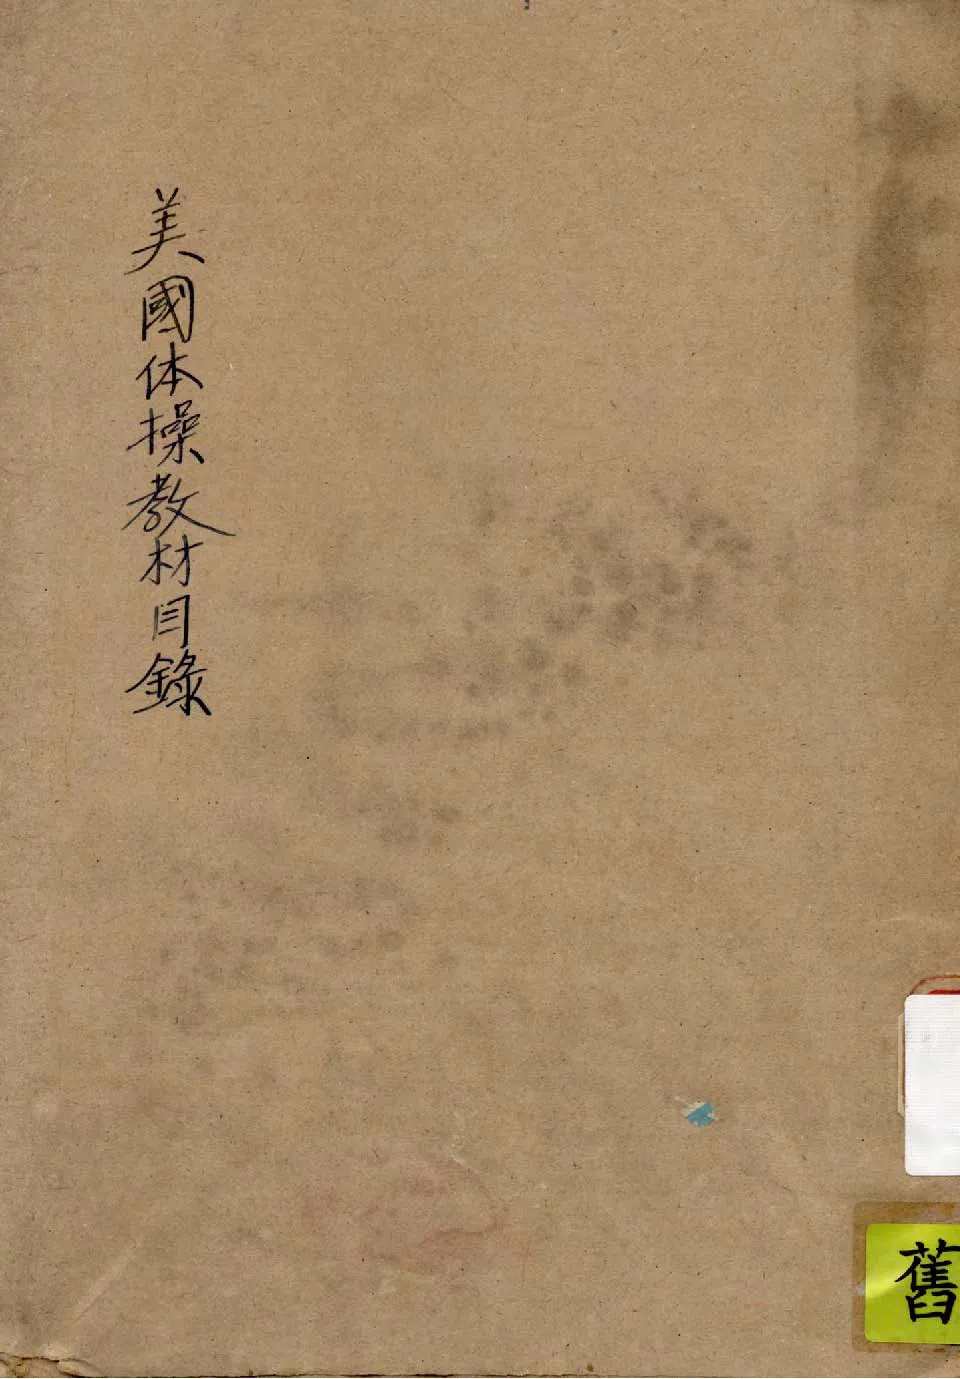 美國体操教材目錄
舊